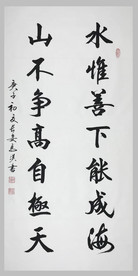 水惟善下能成海
山不争高自極天
庚子初夏古吴志洪書